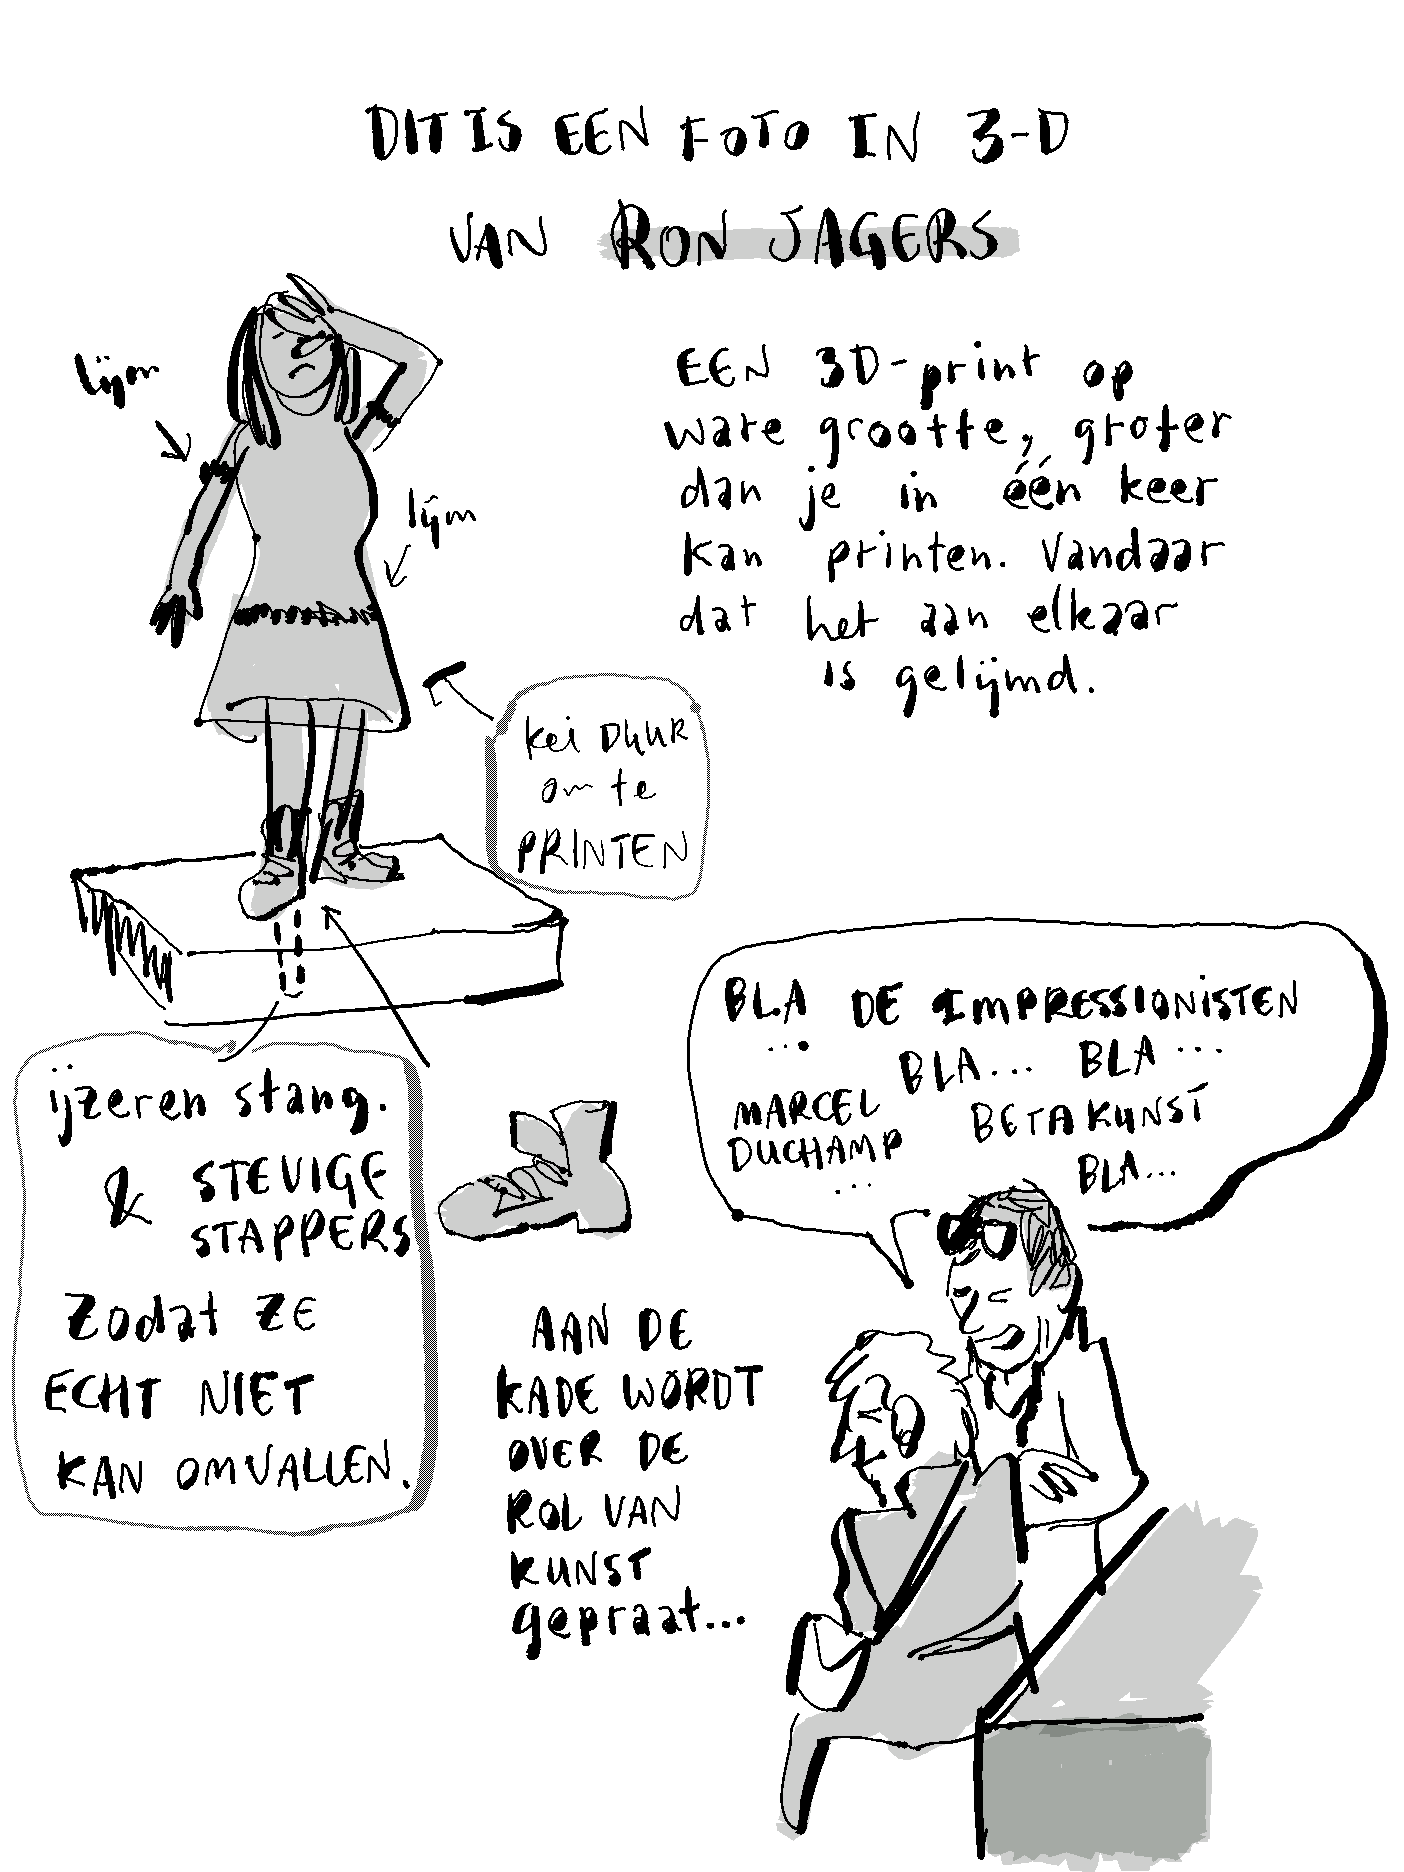 DIT IS EEN FOTO IN 3-D
VAN RON JAGERS
lijm
lijm
EEN 3D-print op
ware grootte, groter
dan je in één keer
kan printen. Vandaar
dat het aan elkaar
is gelijmd.
kei DUUR
om te
PRINTEN
ijzeren stang.
& STEVIGE
STAPPERS
Zodat ZE
ECHT NIET
KAN OMVALLEN.
BLA DE IMPRESSIONISTEN
... BLA... BLA...
MARCEL BETAKUNST
DUCHAMP
... BLA...
AAN DE
KADE WORDT
OVER DE
ROL VAN
KUNST
gepraat...